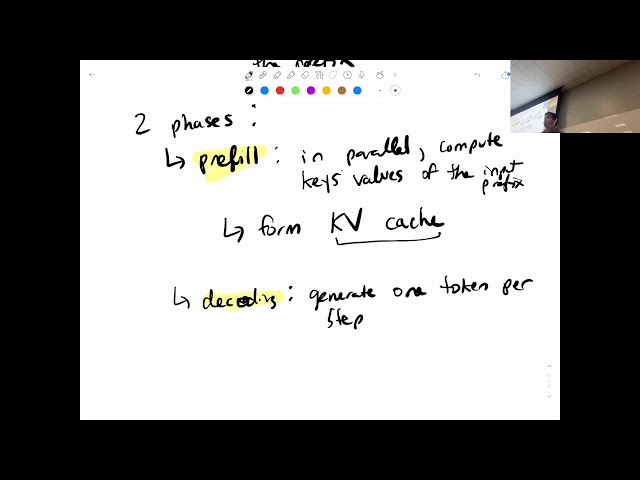 the prefix
2 phases:
↳ prefill: in parallel, compute
keys values of the input
prefix
↳ form KV cache
↳ decoding: generate one token per
step